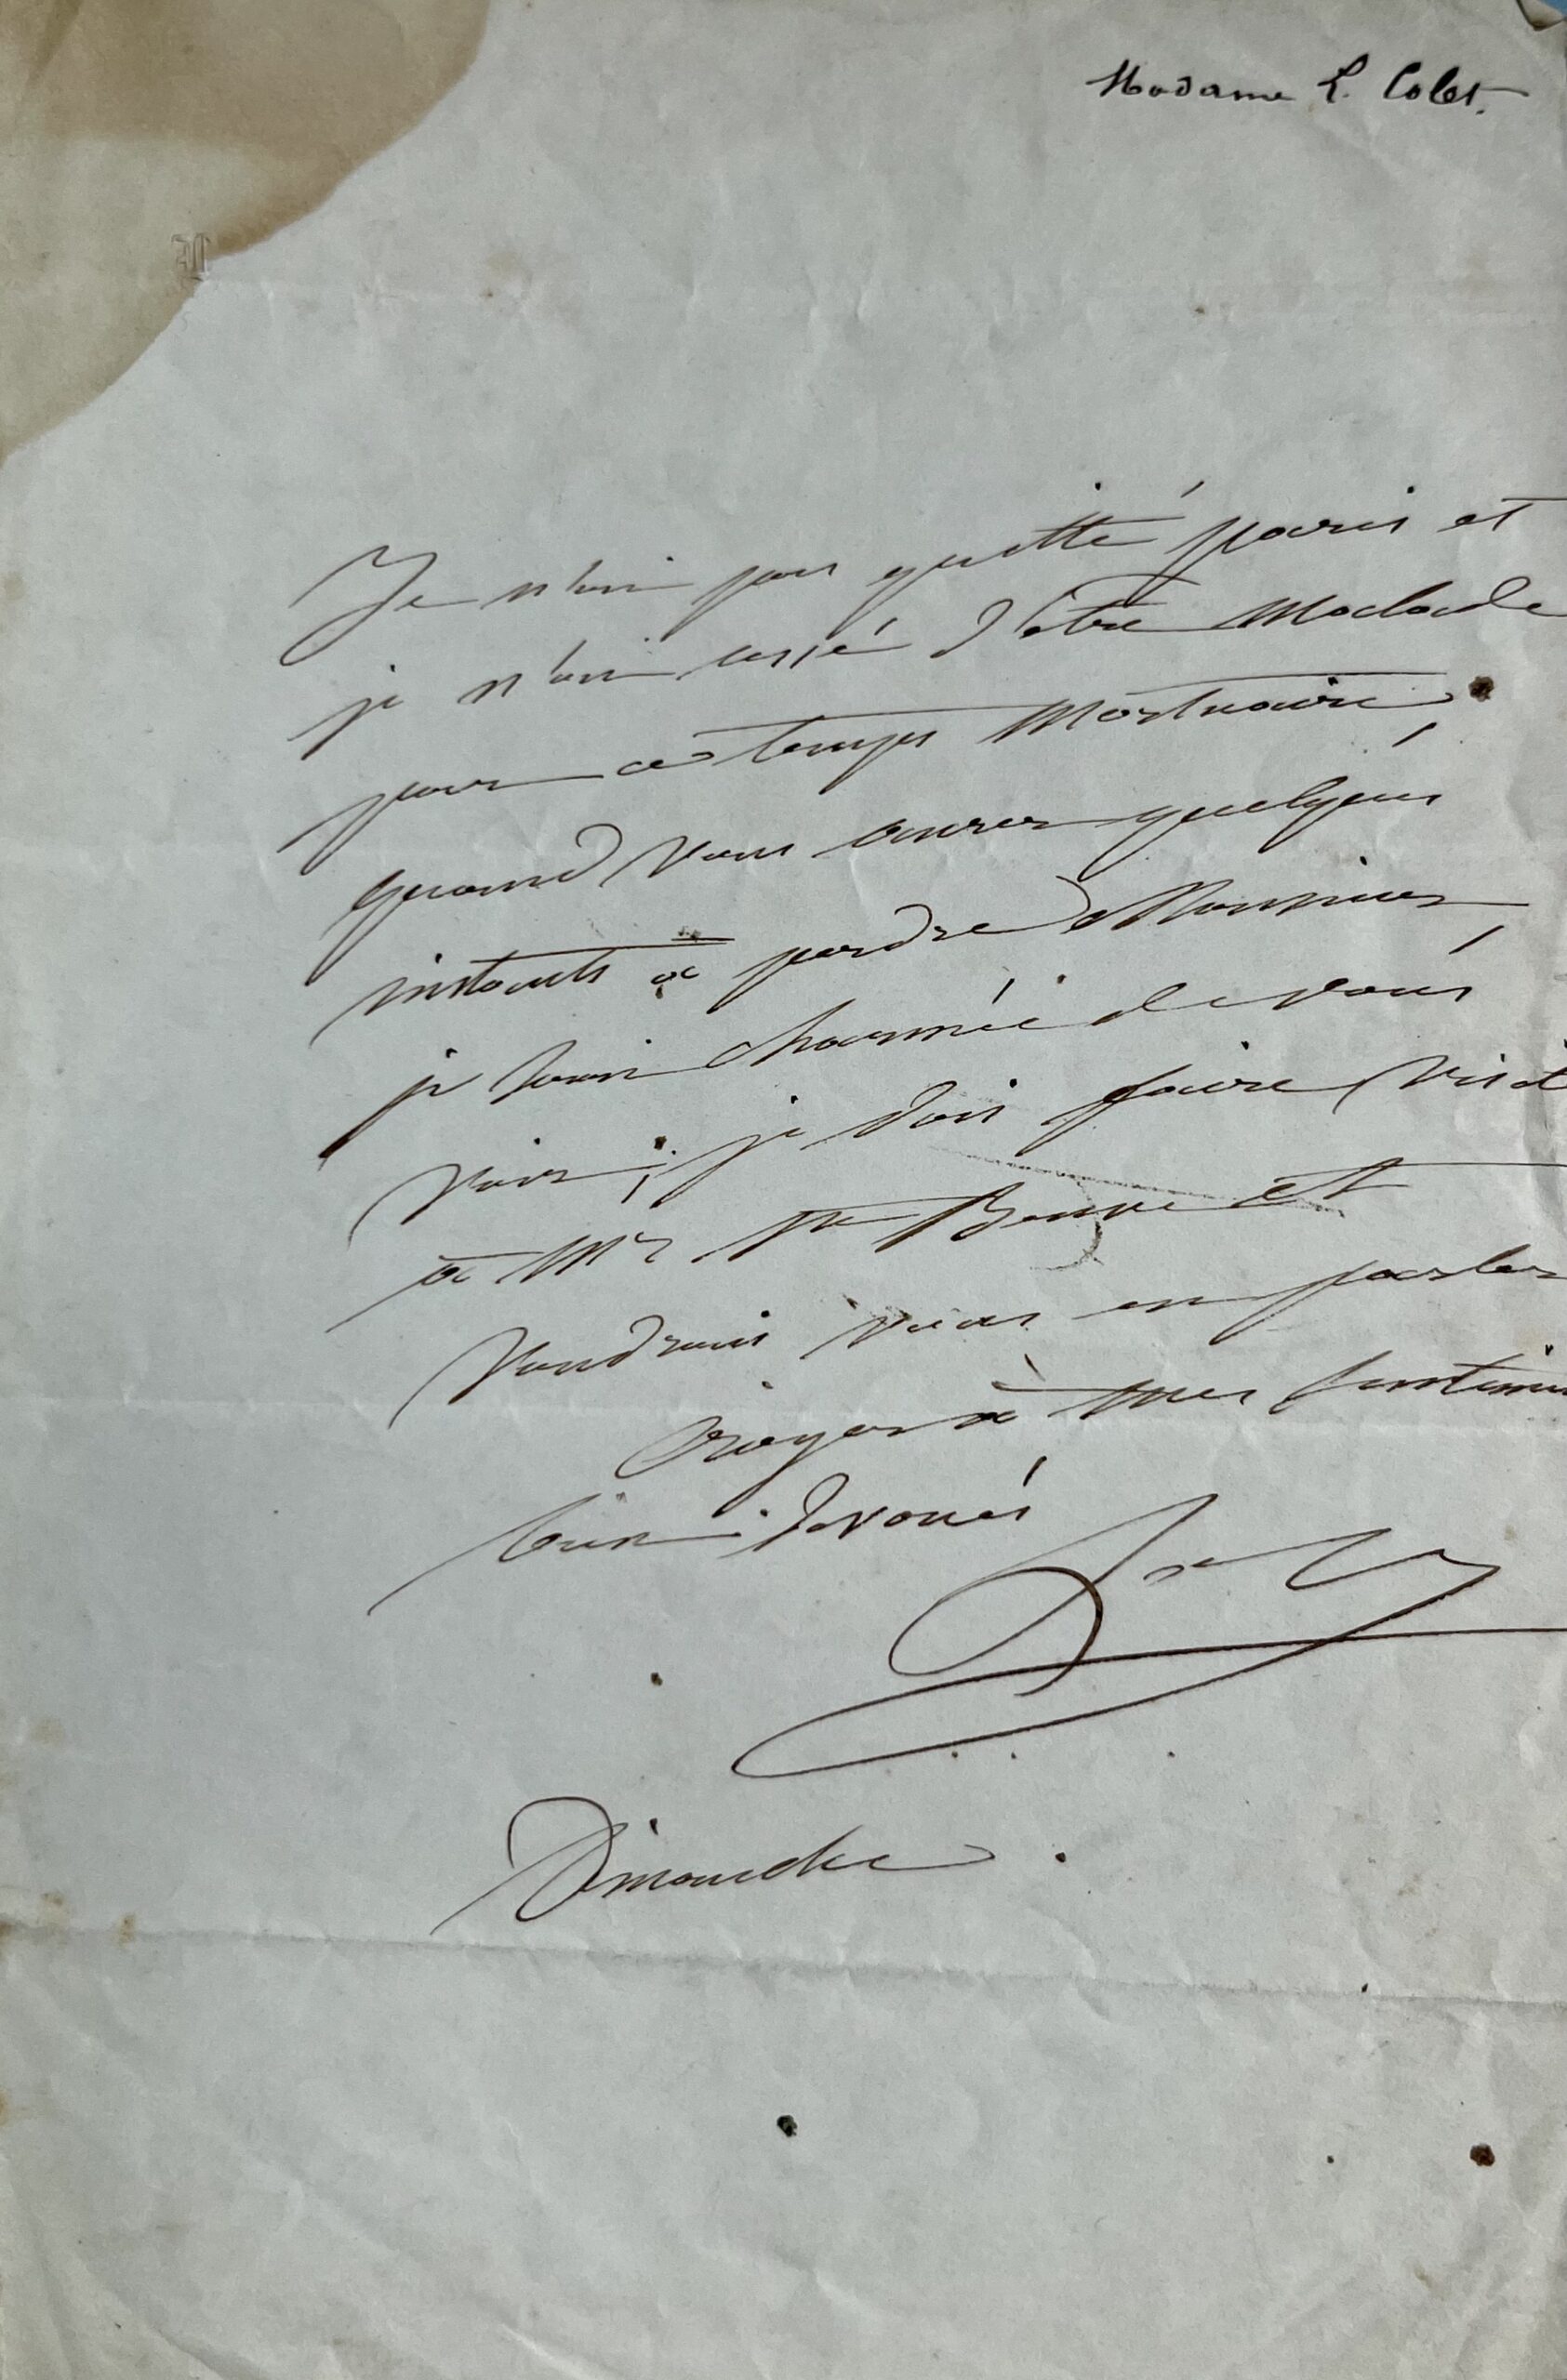 Madame L. Colet.
Je n'ai pas quitté paris et
je n'ai cessé d'être Malade
par ce temps Mortuaire.
quand vous aurez quelques
instants à perdre Monsieur,
je serai charmée de vous
voir; je dois faire visit
à Mr Ste Beuve et
voudrais vous en parler
Croyez à mes sentimen
bien dévoués
Dimanche.